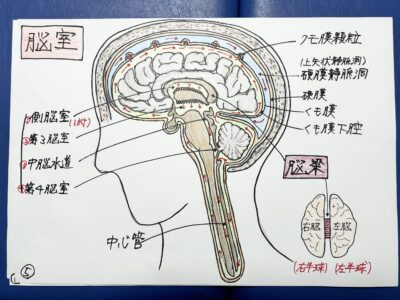 脳室
クモ膜顆粒
(上矢状静脈洞)
硬膜静脈洞
硬膜
くも膜
くも膜下腔
①側脳室(1対)
②第3脳室
③中脳水道
④第4脳室
中心管
脳梁
右脳 左脳
(右半球) (左半球)
⑤